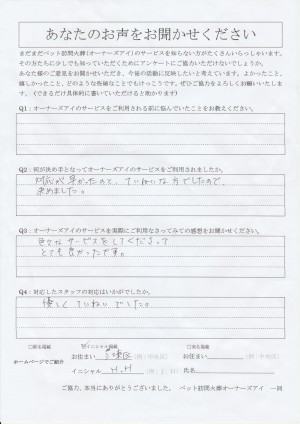 あなたのお声をお聞かせください
まだまだペット訪問火葬(オーナーズアイ)のサービスを知らない方がたくさんいらっしゃいます。
その方たちに少しでも知っていただくためにアンケートにご協力いただけないでしょうか。
あなた様のご意見をお聞かせいただき、今後の活動に反映したいと考えています。よかったこと、
嬉しかったこと、どのような些細なことでもけっこうです。ぜひご協力をよろしくお願いいたしま
す。(できるだけ具体的に書いていただけると助かります)
Q1：オーナーズアイのサービスをご利用される前に悩んでいたことをお教えください。
Q2：何が決め手となってオーナーズアイのサービスをご利用されましたか。
対応が早かったのと、ていねいな方でしたので、
決めました。
Q3：オーナーズアイのサービスを実際にご利用なさってみての感想をお聞かせください。
色々なサービスをしてくださって
とても良かったです。
Q4：対応したスタッフの対応はいかがでしたか。
優しくていねいでした。
□匿名掲載 ☑イニシャル掲載 □実名掲載
お住まい (例：中央区) お住まい (例：中央区)
ホームページでご紹介
イニシャル H.H 氏名
ご協力、本当にありがとうございました。 ペット訪問火葬オーナーズアイ 一同